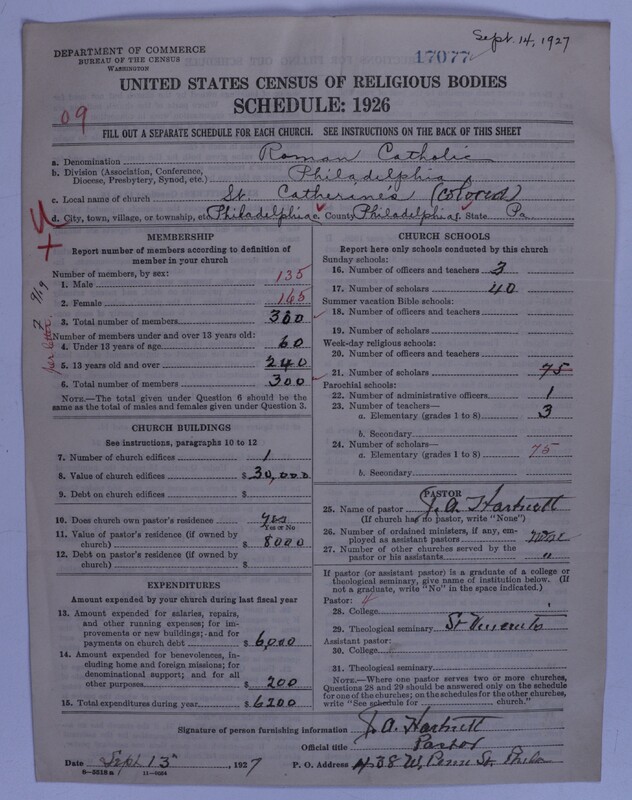 Sept. 14, 1927
17077
DEPARTMENT OF COMMERCE
BUREAU OF THE CENSUS
WASHINGTON
UNITED STATES CENSUS OF RELIGIOUS BODIES
SCHEDULE: 1926
09
FILL OUT A SEPARATE SCHEDULE FOR EACH CHURCH. SEE INSTRUCTIONS ON THE BACK OF THIS SHEET
a. Denomination Roman Catholic
b. Division (Association, Conference, Diocese, Presbytery, Synod, etc.) Philadelphia
c. Local name of church St. Catherine's (colored)
d. City, town, village, or township, etc. Philadelphia e. County Philadelphia f. State Pa
MEMBERSHIP
Report number of members according to definition of
member in your church
Number of members, by sex:
1. Male 135
2. Female 165
3. Total number of members 300
Number of members under and over 13 years old:
4. Under 13 years of age 60
5. 13 years old and over 240
6. Total number of members 300
NOTE.—The total given under Question 6 should be
the same as the total of males and females given under Question 3.
per letter 9/19
CHURCH BUILDINGS
See instructions, paragraphs 10 to 12
7. Number of church edifices 1
8. Value of church edifices $ 30,000
9. Debt on church edifices $
10. Does church own pastor's residence yes
Yes or No
11. Value of pastor's residence (if owned by
church) $ 8000
12. Debt on pastor's residence (if owned by
church) $
EXPENDITURES
Amount expended by your church during last fiscal year
13. Amount expended for salaries, repairs,
and other running expenses; for im-
provements or new buildings; and for
payments on church debt $ 6,000
14. Amount expended for benevolences, in-
cluding home and foreign missions; for
denominational support; and for all
other purposes $ 200
15. Total expenditures during year $ 6200
CHURCH SCHOOLS
Report here only schools conducted by this church
Sunday schools:
16. Number of officers and teachers 3
17. Number of scholars 40
Summer vacation Bible schools:
18. Number of officers and teachers
19. Number of scholars
Week-day religious schools:
20. Number of officers and teachers
21. Number of scholars 75
Parochial schools:
22. Number of administrative officers 1
23. Number of teachers—
a. Elementary (grades 1 to 8) 3
b. Secondary
24. Number of scholars—
a. Elementary (grades 1 to 8) 75
b. Secondary
PASTOR
25. Name of pastor J. A. Hartnett
(If church has no pastor, write "None")
26. Number of ordained ministers, if any, em-
ployed as assistant pastors none
27. Number of other churches served by the
pastor or his assistants "
If pastor (or assistant pastor) is a graduate of a college or
theological seminary, give name of institution below. (If
not a graduate, write "No" in the space indicated.)
Pastor: 4
28. College
29. Theological seminary St Vincents
Assistant pastor:
30. College
31. Theological seminary
NOTE.—Where one pastor serves two or more churches,
Questions 28 and 29 should be answered only on the schedule
for one of the churches; on the schedules for the other churches,
write "See schedule for church."
Signature of person furnishing information J. A. Hartnett
Official title Pastor
Date Sept 13, 1927 P. O. Address 438 W. Penn St. Phila
8—5218a 11—9564